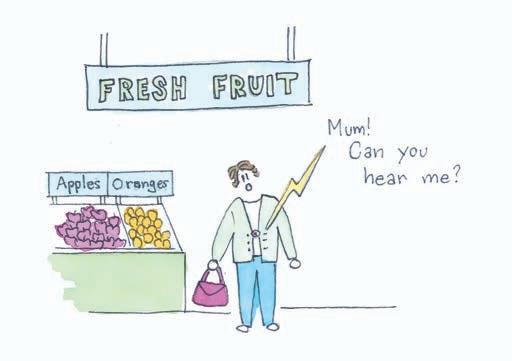 FRESH FRUIT
Mum!
Can you
hear me?
Apples Oranges